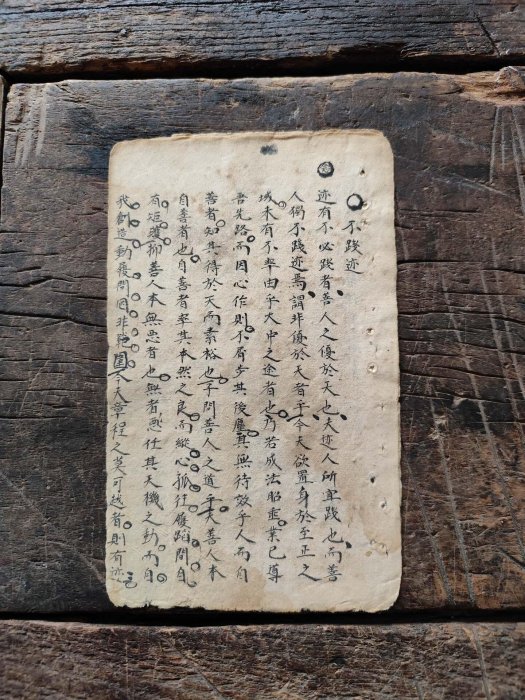 不踐迹
迹有不必踐者善人之優於天也夫迹人所宜踐也而善
人獨不踐迹焉謂非優於天者乎今夫欲置身於至正之
域未有不率由乎大中之途者也乃若成法昭垂業已導
吾先路而因心作則不肯步其後塵其無待效乎人而自
善者知其得於天而素裕也子問善人之道乎夫善人本
自善者也自善者率其本然之良而縱心孤往履蹈間自
有矩矱抑善人本無惡者也無者惡任其天機之動而自
我創造動履間固非今夫章程之莫可越者則有迹